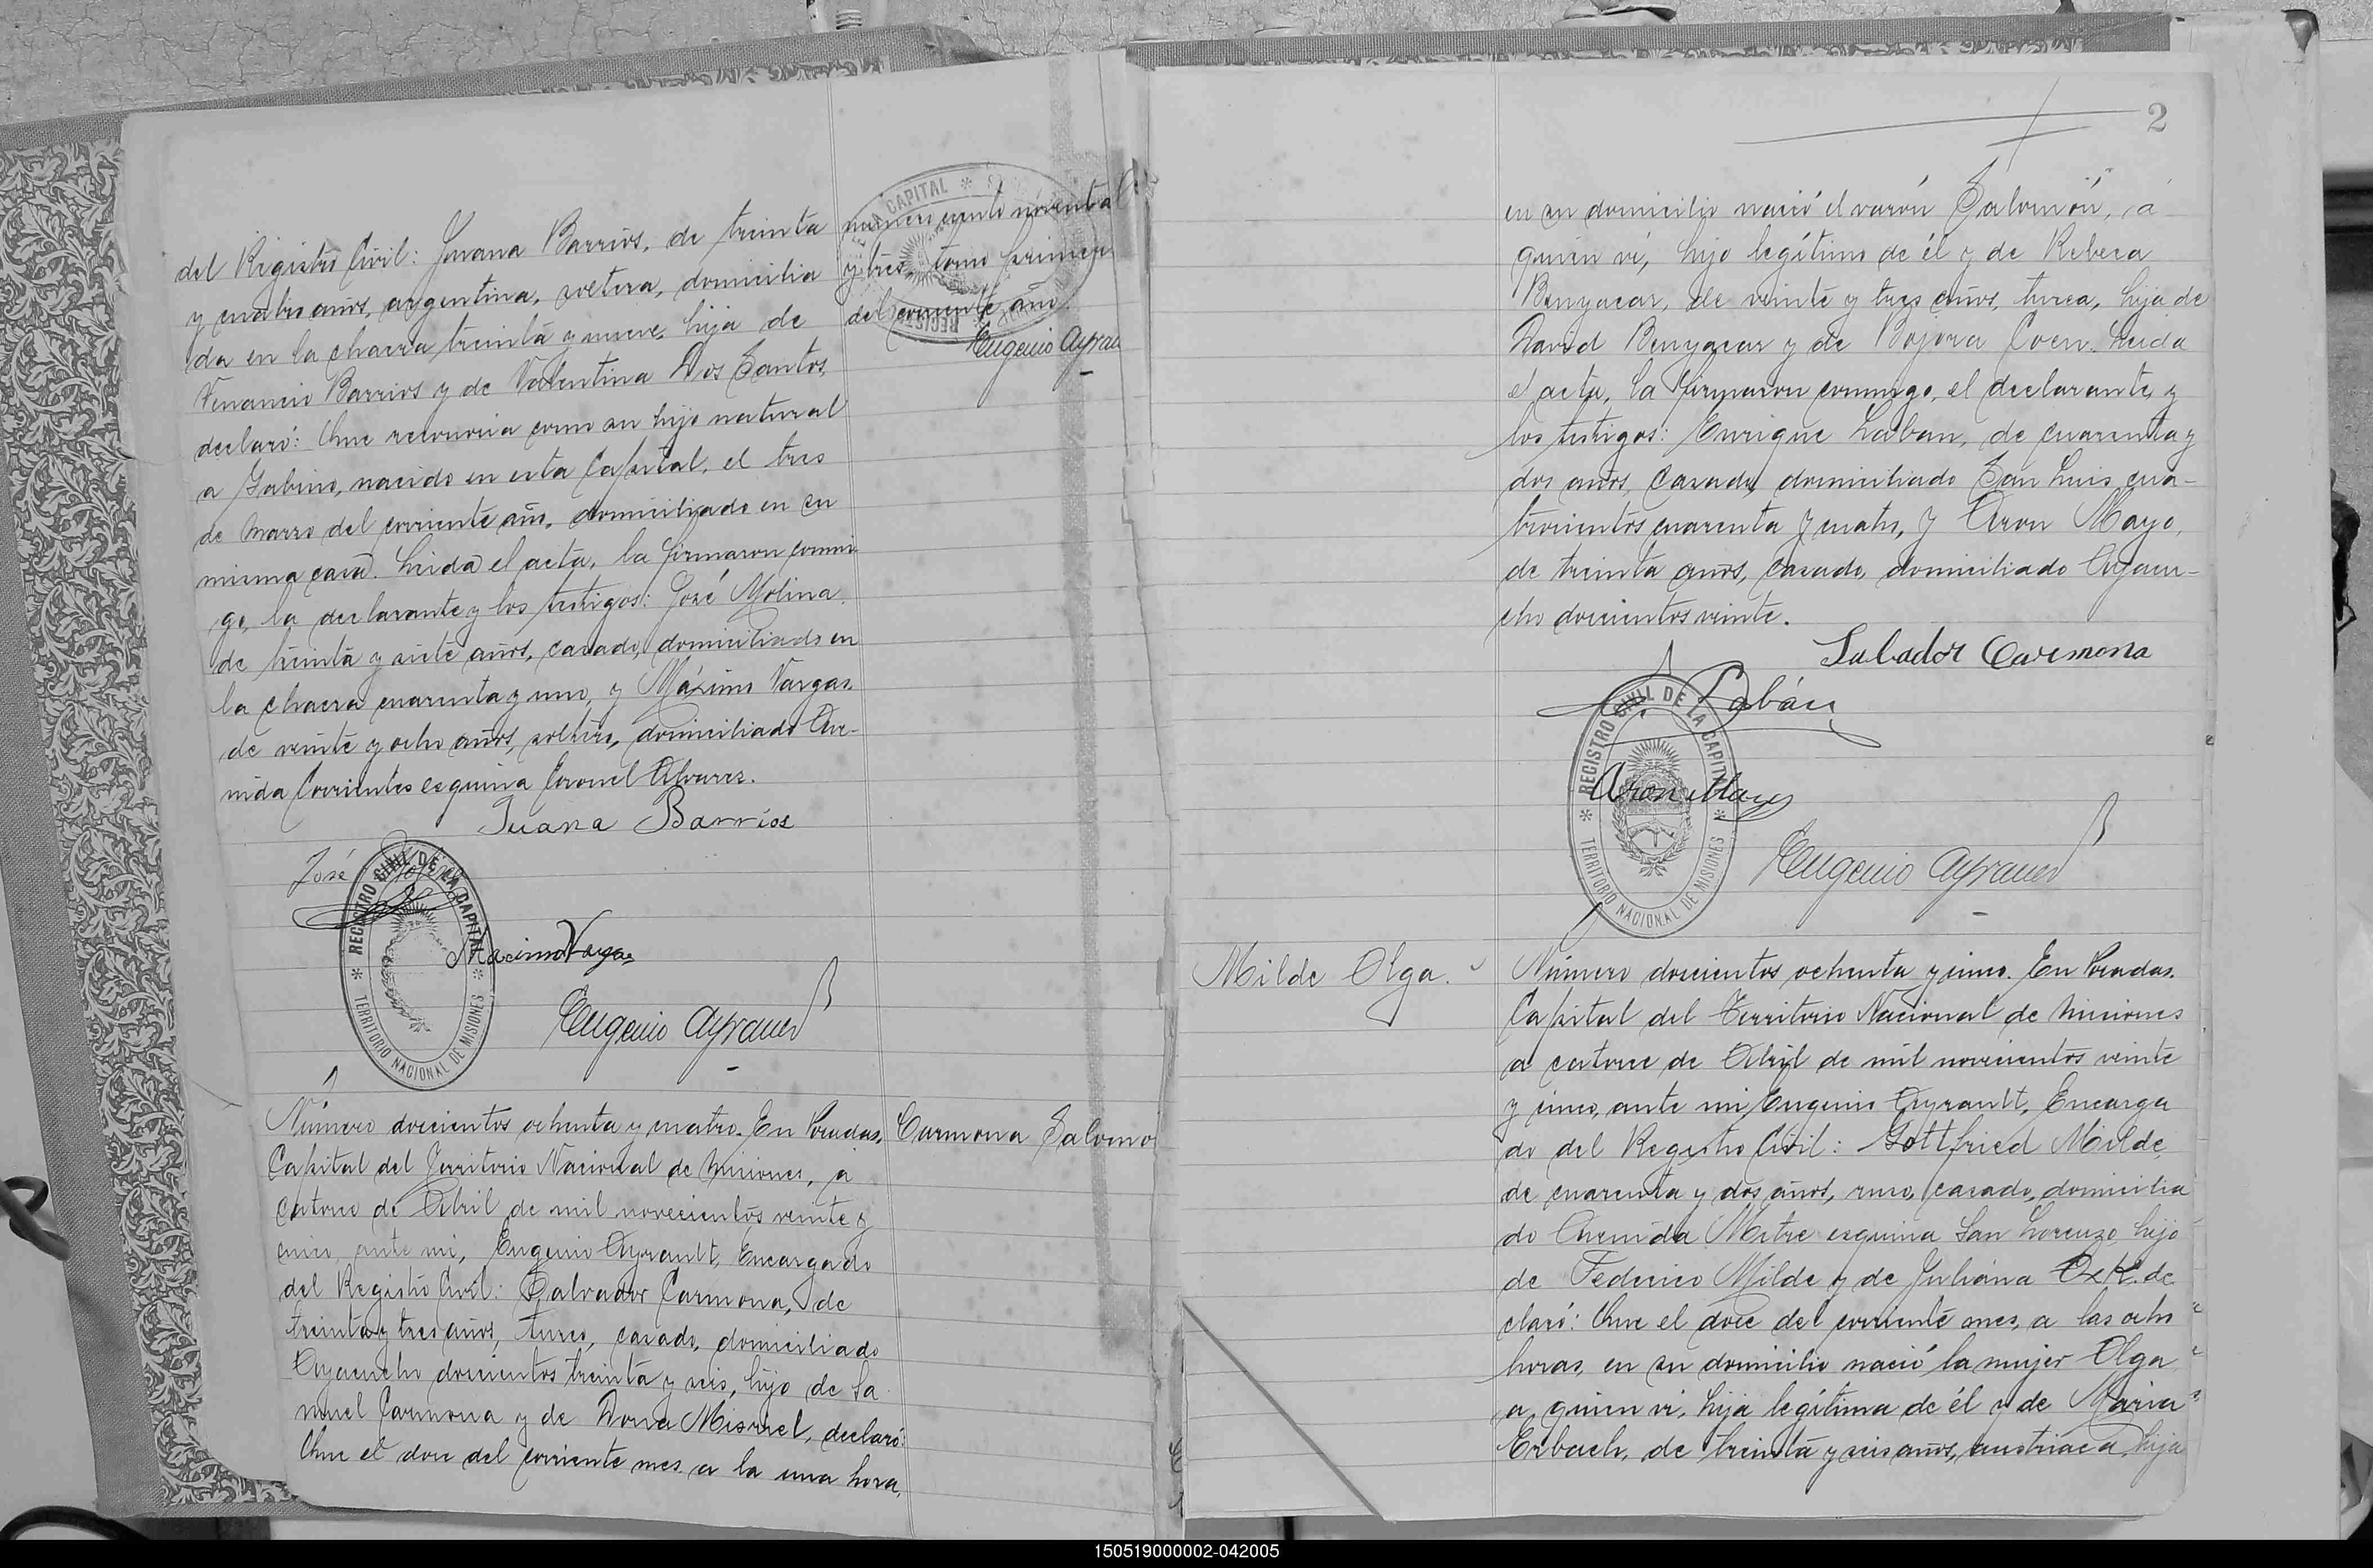 del Registro Civil: Juana Barrios, de treinta
y cuatro años, argentina, soltera, domicilia
da en la chacra treinta y nueve, hija de
Venancio Barrios y de Valentina Dos Santos,
declaró: Que reconocia como su hijo natural
a Gabino, nacido en esta Capital, el tres
de Marzo del corriente año, domiciliado en su
misma casa. Leida el acta, la firmaron conmi
go, la declarante y los testigos: José Molina,
de treinta y siete años, casado, domiciliado en
la chacra cuarenta y uno, y Máximo Vargas,
de veinte y ocho años, soltero, domiciliado Ave-
nida Corrientes esquina Coronel Alvarez.
Juana Barrios
José
Macimo Vargas
Eugenio Ayrault
REGISTRO CIVIL DE LA CAPITAL
TERRITORIO NACIONAL DE MISIONES
numero ciento noventa
y tres, tomo primero
del corriente año.
Eugenio Ayrau
CAPITAL
Número doscientos ochenta y cuatro. En Posadas,
Carmona Salomo
Capital del Territorio Nacional de Misiones, á
catorce de Abril de mil novecientos veinte y
cinco, ante mi, Eugenio Ayrault, Encargado
del Registro Civil: Salvador Carmona, de
treinta y tres años, turco, casado, domiciliado
Ayacucho doscientos treinta y seis, hijo de Sa
muel Carmona y de Dona Misriel, declaró:
Que el doce del corriente mes a la una hora,
2
en su domicilio nació el varón Salomón, á
quien ví, hijo legítimo de él y de Rebeca
Benyacar, de veinte y tres años, turca, hija de
David Benyacar y de Bojora Coen. Leida
el acta, la firmaron conmigo, el declarante y
los testigos: Enrique Laban, de cuarenta y
dos años, casado, domiciliado San Luis cua-
trocientos cuarenta y cuatro, y Aron Mayo,
de treinta años, casado, domiciliado Ayacu-
cho doscientos veinte.
Salbador Carmona
E. Labán
Aron Mayo
Eugenio Ayrault
REGISTRO CIVIL DE LA CAPITAL
TERRITORIO NACIONAL DE MISIONES
Milde Olga.
Número doscientos ochenta y cinco. En Posadas,
Capital del Territorio Nacional de Misiones
a catorce de Abril de mil novecientos veinte
y cinco, ante mi, Eugenio Ayrault, Encarga
do del Registro Civil: Gottfried Milde,
de cuarenta y dos años, ruso, casado, domicilia
do Avenida Mitre esquina San Lorenzo, hijo
de Federico Milde y de Juliana de
claró: Que el doce del corriente mes, a las ocho
horas, en su domicilio nació la mujer Olga
a quien ví, hija legítima de él y de Maria
Erbach, de treinta y seis años, austriaca, hija
150519000002-042005